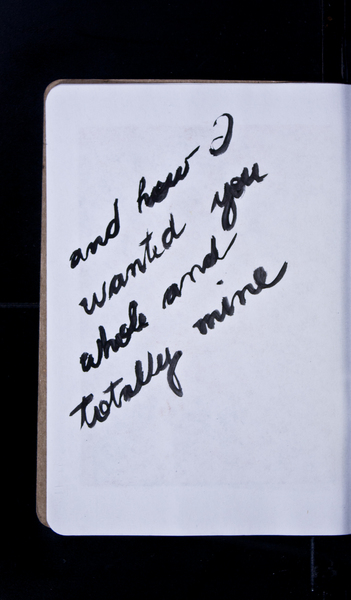 and how I
wanted you
whole and
totally mine